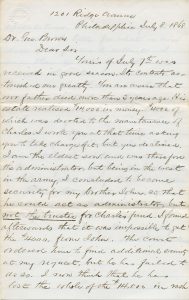 1201 Ridge Avenue
Philadelphia July 8 1869
Dr. Geo Brown
Dear Sir
Yours of July 7th was
received in good season. Its contents as-
tonished me greatly. You are aware that
my father died more than 6 years ago. His
estate realized $1000 in money, $600 of
which was devoted to the maintenance of
Charles. I wrote you at that time asking
you to take charge of it, but you declined.
I am the eldest son, and was therefore
the administrator, but being on the
in the army, I consented to become
security for my brother John, so that
he could act as administrator, but
not the trustee for Charles' fund. I found
afterwards that it was impossible to get
the from John. The court
ordered him to give additional security
at my request, but he has failed to
do so. I now think that he has
lost the whole of the in